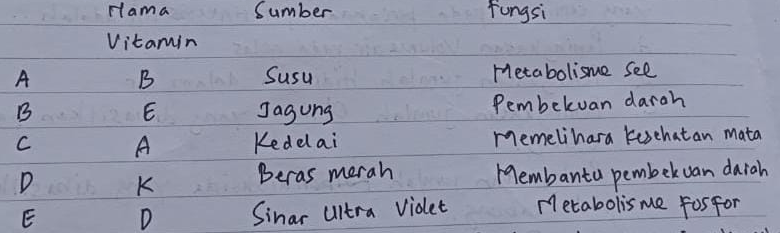 Nama Sumber Fungsi
Vitamin
A B Susu Metabolisme Sel
B E Jagung Pembekuan darah
C A Kedelai Memelihara kesehatan mata
D K Beras merah Membantu pembekuan darah
E D Sinar Ultra Violet Metabolisme Fosfor